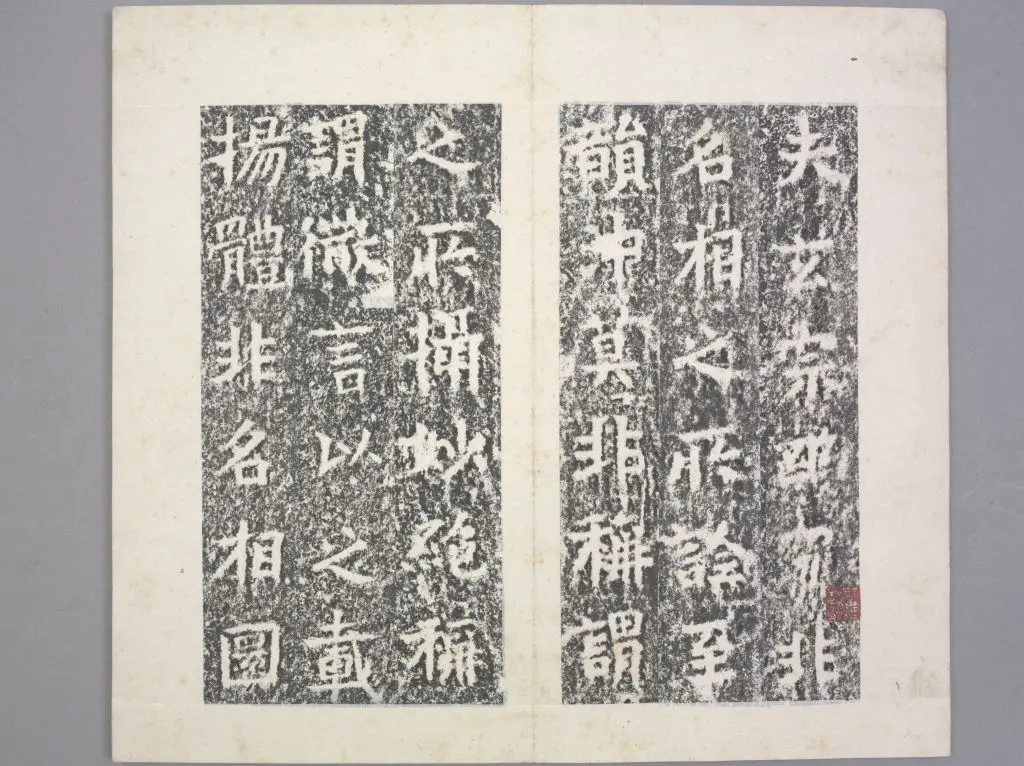 夫玄宗寂非
名相之所詮至
韻沖莫非稱謂
之所攝妙絕稱
謂微言以之載
揚體非名相圖